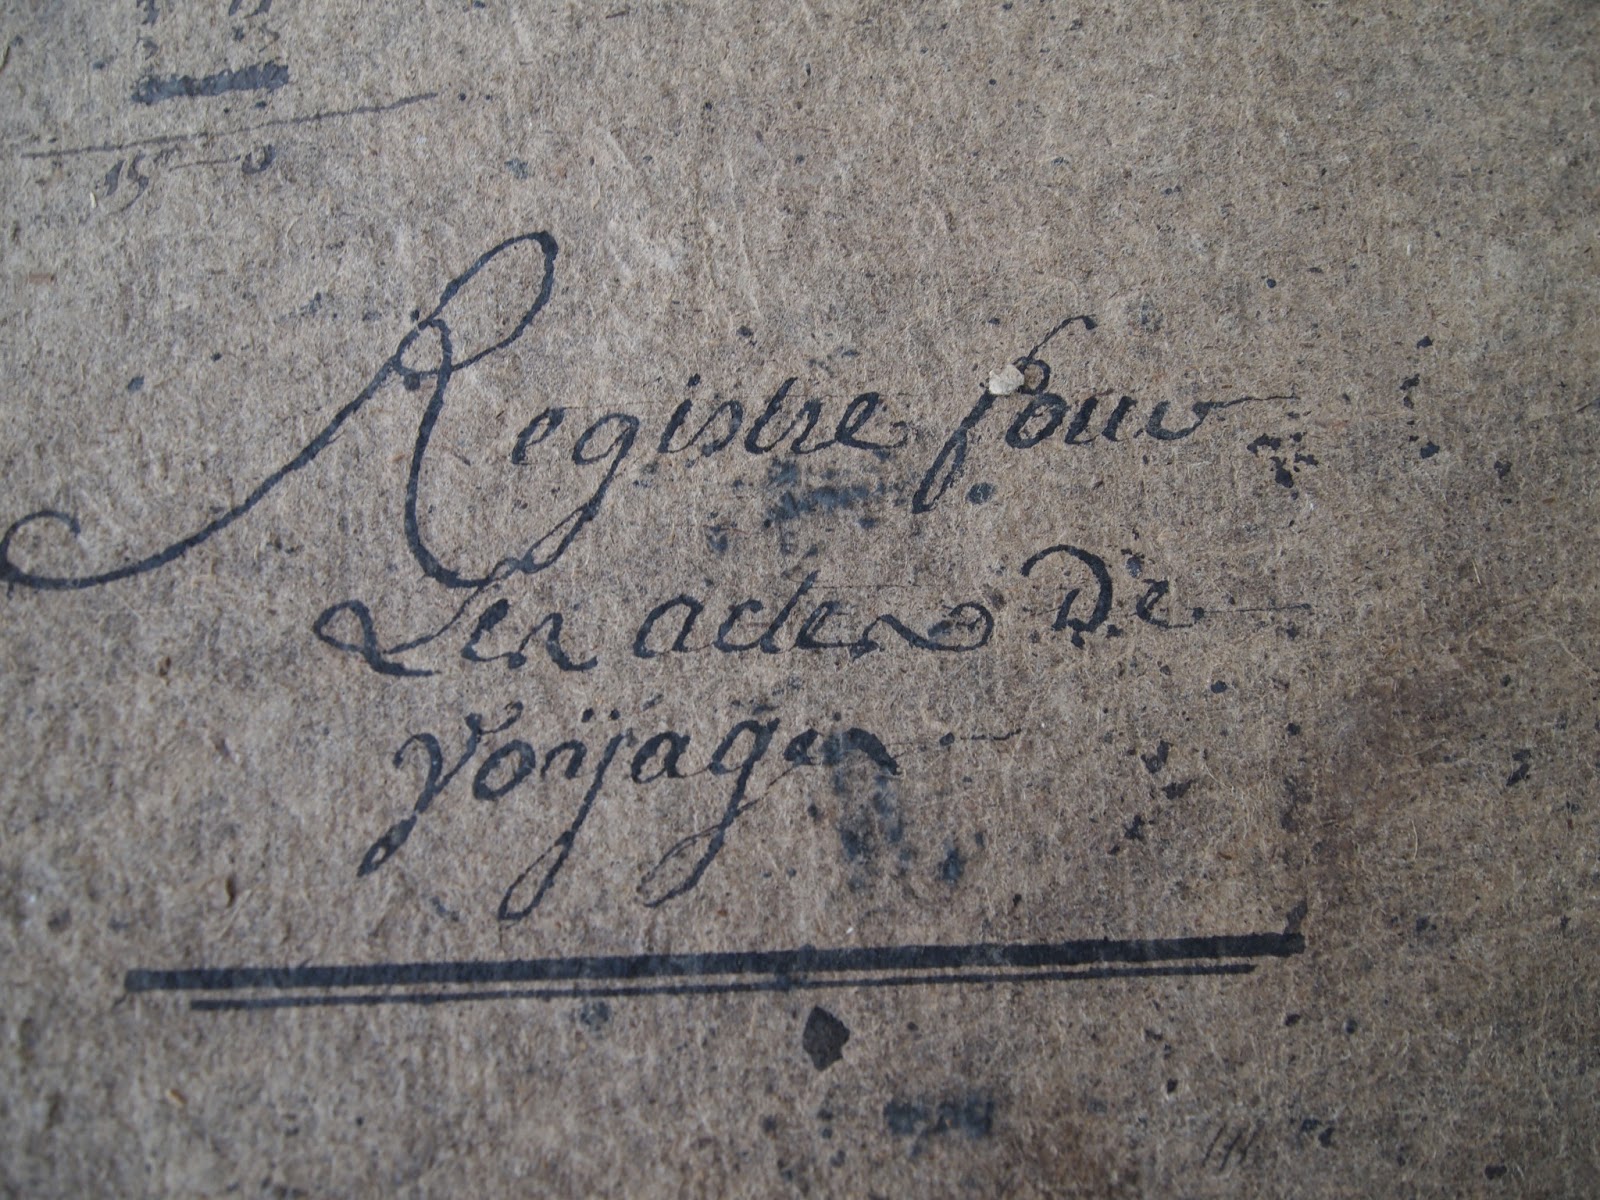 15 - 0
Registre pour
Les actes De
voÿages